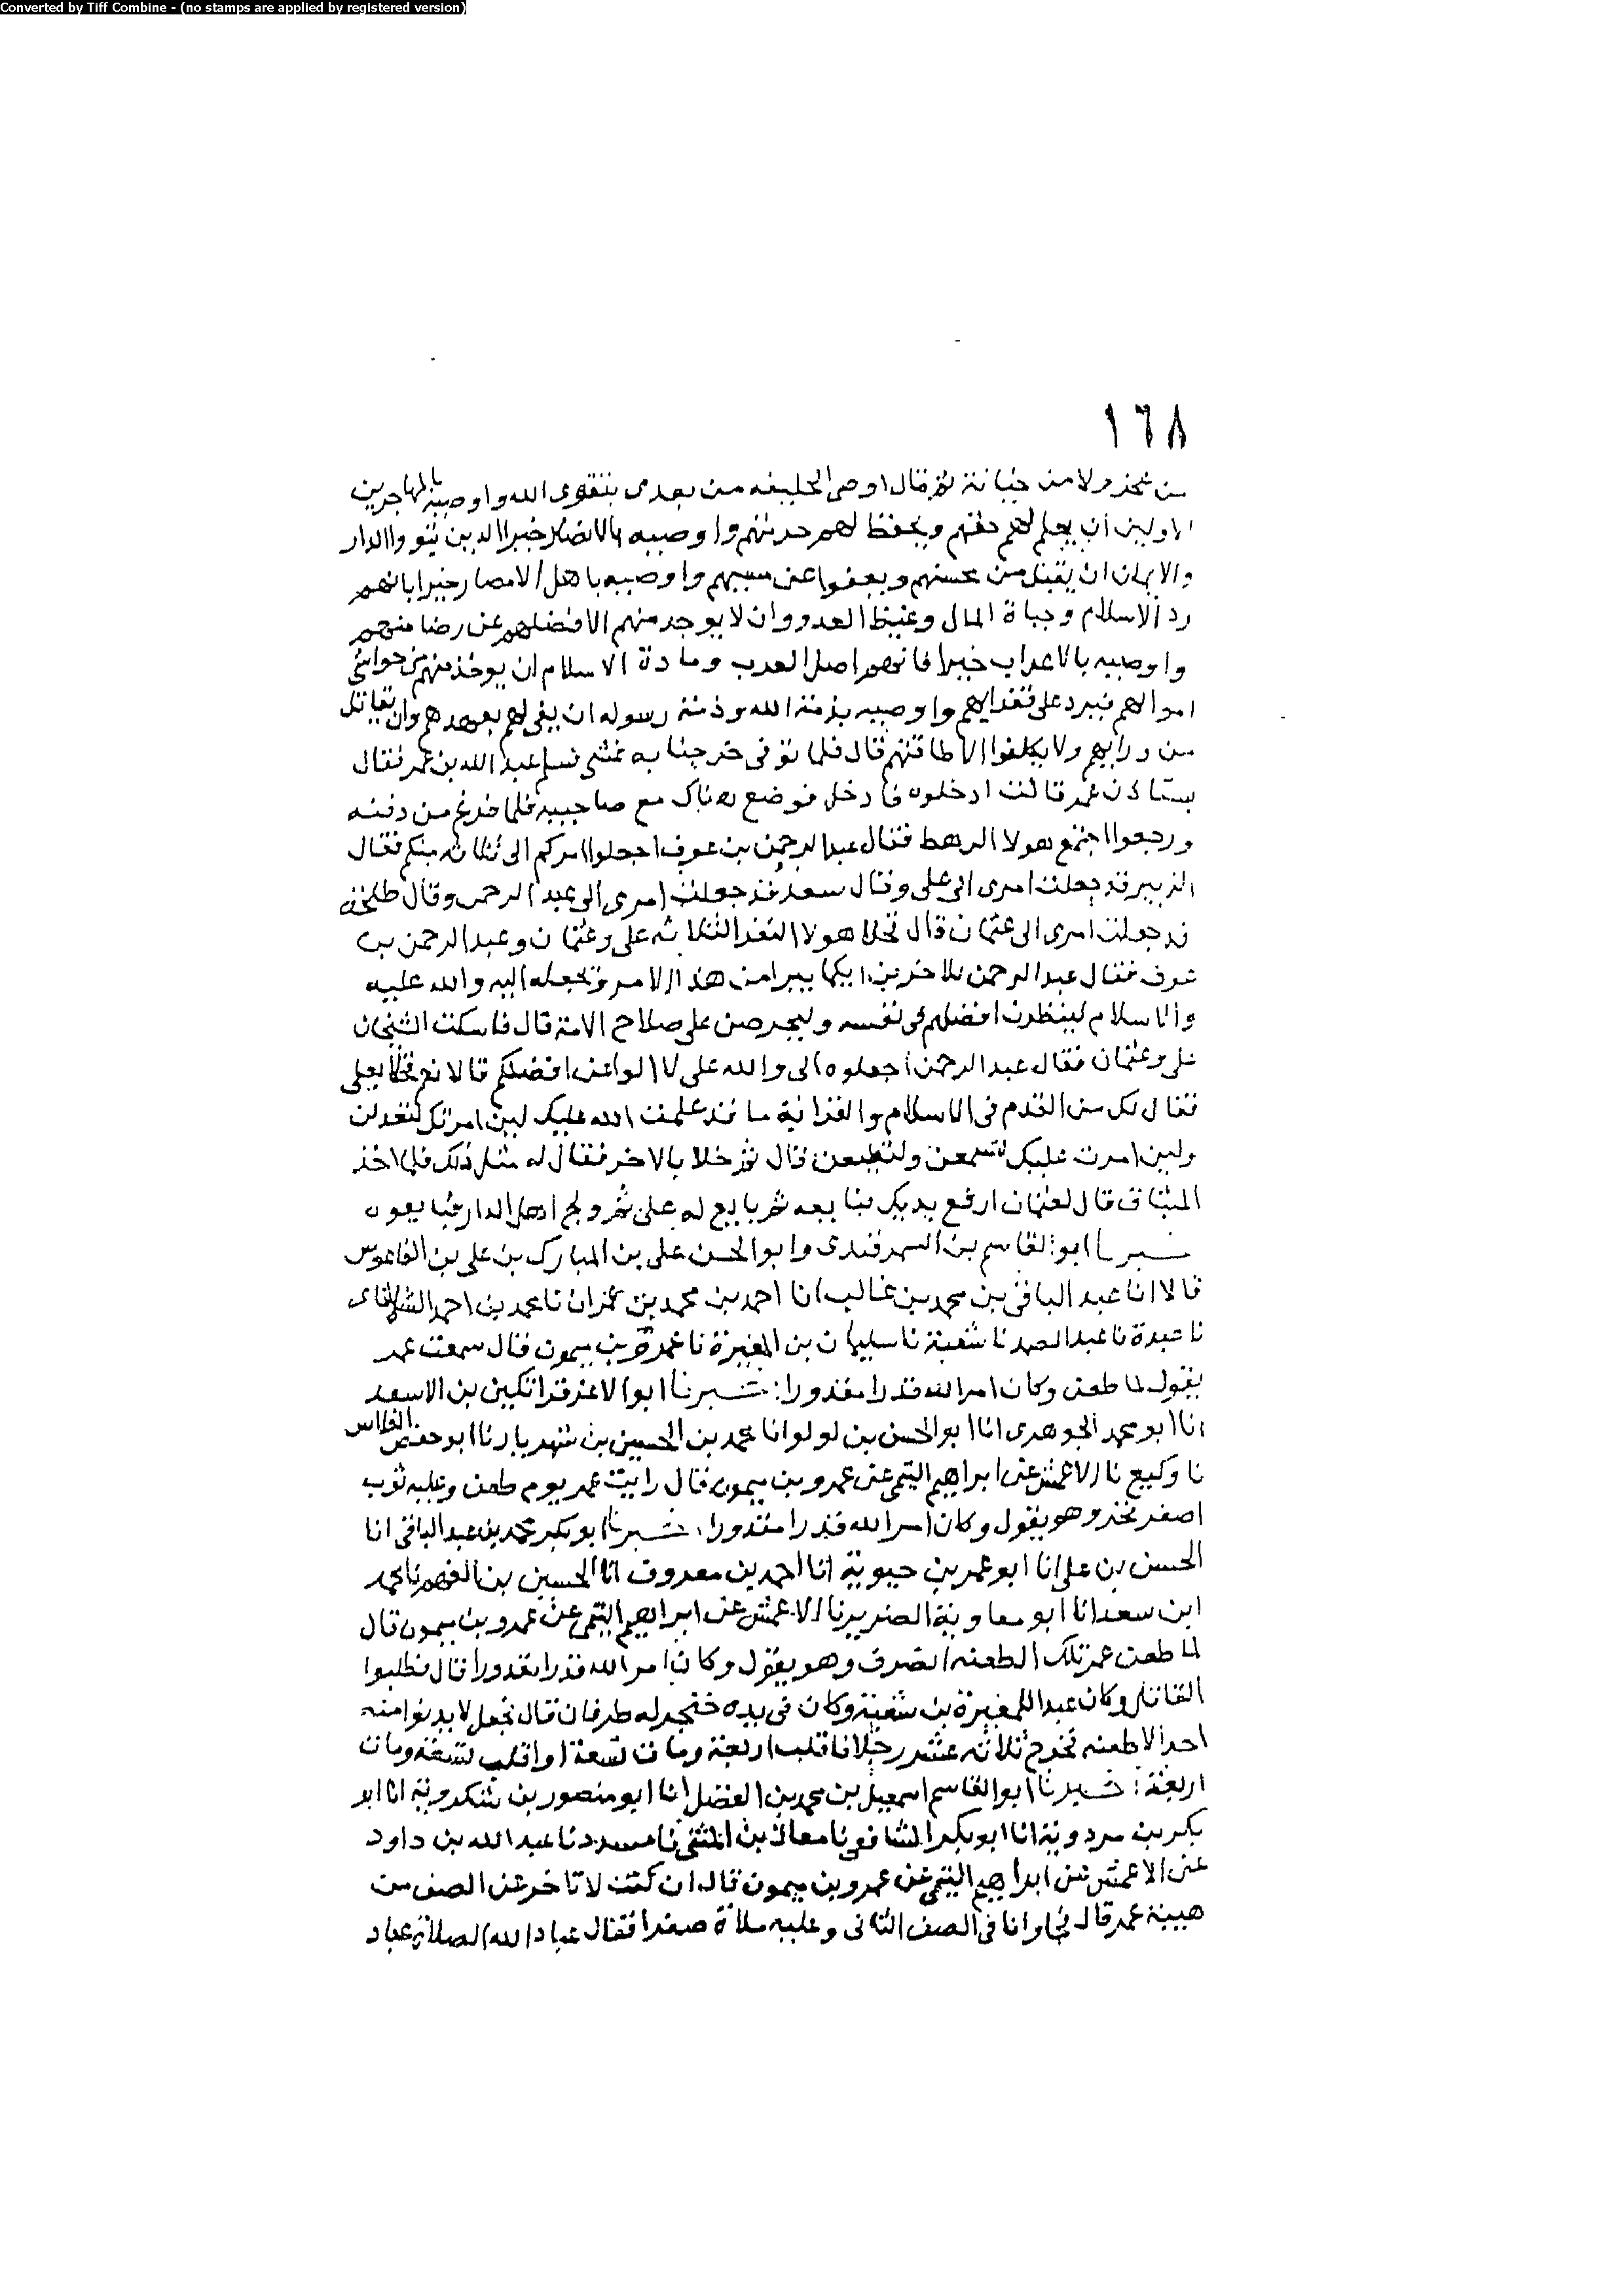 Converted by Tiff Combine - (no stamps are applied by registered version)
١٦٨
من عجز ولا من خيانة ثم قال اوصى الخليفه من بعدى بتقوى الله واوصيه بالمهاجرين
الاولين ان يعلم لهم حقهم ويحفظ لهم حرمتهم واوصيه بالانصار خيرا الذين تبوواالدار
والايمان ان يقبل من محسنهم ويعفوا عن مسيهم واوصيه باهل الامصار خيرا فانهم
رد الاسلام وجباة المال وغيظ العدو وان لا يوخد منهم الا فضلهم عن رضا منهم
واوصيه بالاعراب خيرا فانهم اصل العرب ومادة الاسلام ان يوخذ منهم من حواشى
اموالهم فيرد على فقرايهم واوصيه بذمة الله وذمة رسوله ان يفى لهم بعهدهم وان يقاتل
من ورايهم ولا يكلفوا الا طاقتهم قال فلما توفى خرجنا به نمشى فسلم عبد الله بن عمر فقال
يستاذن عمر قالت ادخلوه فادخل فوضع هناك مع صاحبيه فلما فرغ من دفنه
ورجعوا اجتمع هولا الرهط فقال عبد الرحمن بن عوف اجعلوا امركم الى ثلاثه منكم فقال
الزبير قد جعلت امرى الى على وقال سعد قد جعلت امرى الى عبد الرحمن وقال طلحة
قد جعلت امرى الى عثمان قال فخلا هولا النفر الثلاثه على وعثمان وعبد الرحمن بن
عوف فقال عبد الرحمن للاخرين ايكما يبرا من هذا الامر ونجعله اليه والله عليه
والاسلام لينظرن افضلهم فى نفسه وليحرصن على صلاح الامة قال فاسكت الشيخان
على وعثمان فقال عبد الرحمن اجعلوه الى والله على لا الوا عن افضلكم قالا نعم فخلا بعلى
فقال لك من القدم فى الاسلام والقرابة ما قد علمت الله عليك لين امرتك لتعدلن
ولين امرت عليك لتسمعن ولتطيعن قال ثم خلا بالاخر فقال له مثل ذلك فلما اخذ
الميثاق قال لعثمان ارفع يديك فبايعه ثم بايع له على ثم ولج اهل الدار فبايعوه
خبرنا ابو القاسم بن السمرقندى وابو الحسن على بن المبارك بن على بن الفاعوس
قالا انا عبد الباقى بن محمد بن غالب انا احمد بن محمد بن عمران نا محمد بن احمد
نا عبدة نا عبد الصمد نا شعبة نا سليمان بن المغيرة نا عمرو بن ميمون قال سمعت عمر
يقول لما طعن وكان امر الله قدرا مقدورا: خبرنا ابو الاعز قراتكين بن الاسعد
انا ابو محمد الجوهرى انا ابو الحسن بن لولو انا محمد بن الحسين بن شهريار نا ابو حفص الفلاس
نا وكيع نا الاعمش عن ابراهيم التيمى عن عمرو بن ميمون قال رايت عمر يوم طعن وعليه ثوب
اصفر فخر وهو يقول وكان امر الله قدرا مقدورا: خبرنا ابو بكر محمد بن عبد الباقى انا
الحسن بن على انا ابو عمر بن حيوية انا احمد بن معروف انا الحسين بن الفهم نا محمد
ابن سعد انا ابو معاوية الضرير نا الاعمش عن ابراهيم التيمى عن عمرو بن ميمون قال
لما طعن عمر تلك الطعنه انصرف وهو يقول وكان امر الله قدرا مقدورا قال فطلبوا
القاتل وكان عبدا للمغيرة بن شعبة وكان فى يده خنجر له طرفان قال فجعل لا يدنوا منه
احد الا طعنه فجرح ثلاثه عشر رجلا فافلت اربعة ومات تسعة او افلت تسعة ومات
اربعة: خبرنا ابو القاسم اسمعيل بن محمد بن الفضل انا ابو منصور بن شكروية انا ابو
بكر بن مردوية انا ابو بكر الشافعى نا معاذ بن المثنى نا مسدد نا عبد الله بن داود
عن الاعمش عن ابراهيم التيمى عن عمرو بن ميمون قال ان كنت لاتاخر عن الصف من
هيبة عمر قال فجا وانا فى الصف الثانى وعليه ملاة صفرا فقال عباد الله الصلاة عباد